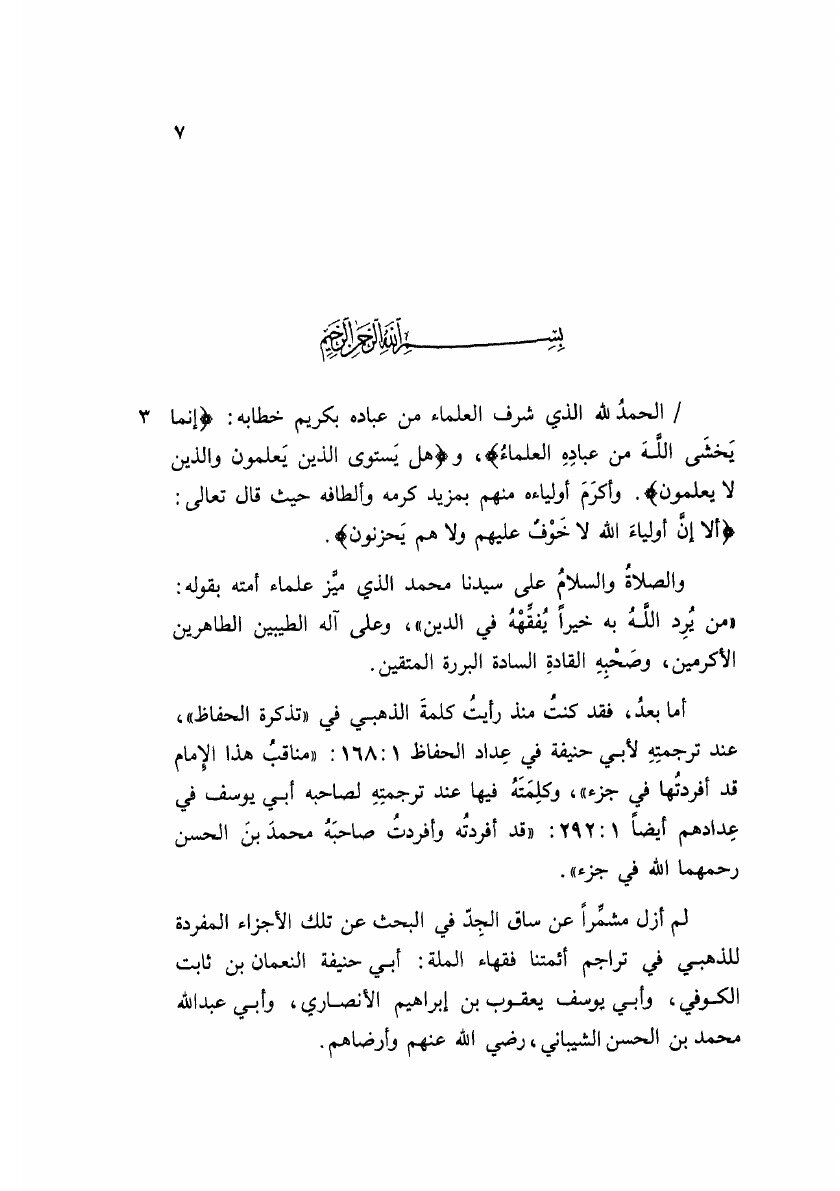 ٧
بِسْمِ اللهِ الرَّحْمٰنِ الرَّحِيمِ
/ الحمدُ لله الذي شرف العلماء من عباده بكريم خطابه: ﴿إنما ٣
يَخشَى اللَّـهَ من عبادِهِ العلماءُ﴾، و﴿هل يَستوى الذين يَعلمون والذين
لا يعلمون﴾. وأكرَمَ أولياءه منهم بمزيد كرمه وألطافه حيث قال تعالى:
﴿ألا إنَّ أولياءَ الله لا خَوْفٌ عليهم ولا هم يَحزنون﴾.
والصلاةُ والسلامُ على سيدنا محمد الذي ميَّز علماء أمته بقوله:
«من يُرِد اللَّـهُ به خيراً يُفقِّهْهُ في الدين»، وعلى آله الطيبين الطاهرين
الأكرمين، وصَحْبِهِ القادةِ السادة البررة المتقين.
أما بعدُ، فقد كنتُ منذ رأيتُ كلمةَ الذهبـي في «تذكرة الحفاظ»،
عند ترجمتِهِ لأبـي حنيفة في عِداد الحفاظ ١:١٦٨: «مناقبُ هذا الإمام
قد أفردتُها في جزء»، وكلِمَتَهُ فيها عند ترجمتِهِ لصاحبه أبـي يوسف في
عِدادهم أيضاً ١:٢٩٢: «قد أفردتُه وأفردتُ صاحبَهُ محمدَ بنَ الحسن
رحمهما الله في جزء».
لم أزل مشمِّراً عن ساق الجِدّ في البحث عن تلك الأجزاء المفردة
للذهبـي في تراجم أئمتنا فقهاء الملة: أبـي حنيفة النعمان بن ثابت
الكـوفي، وأبـي يوسف يعقـوب بن إبراهيم الأنصـاري، وأبـي عبدالله
محمد بن الحسن الشيباني، رضي الله عنهم وأرضاهم.